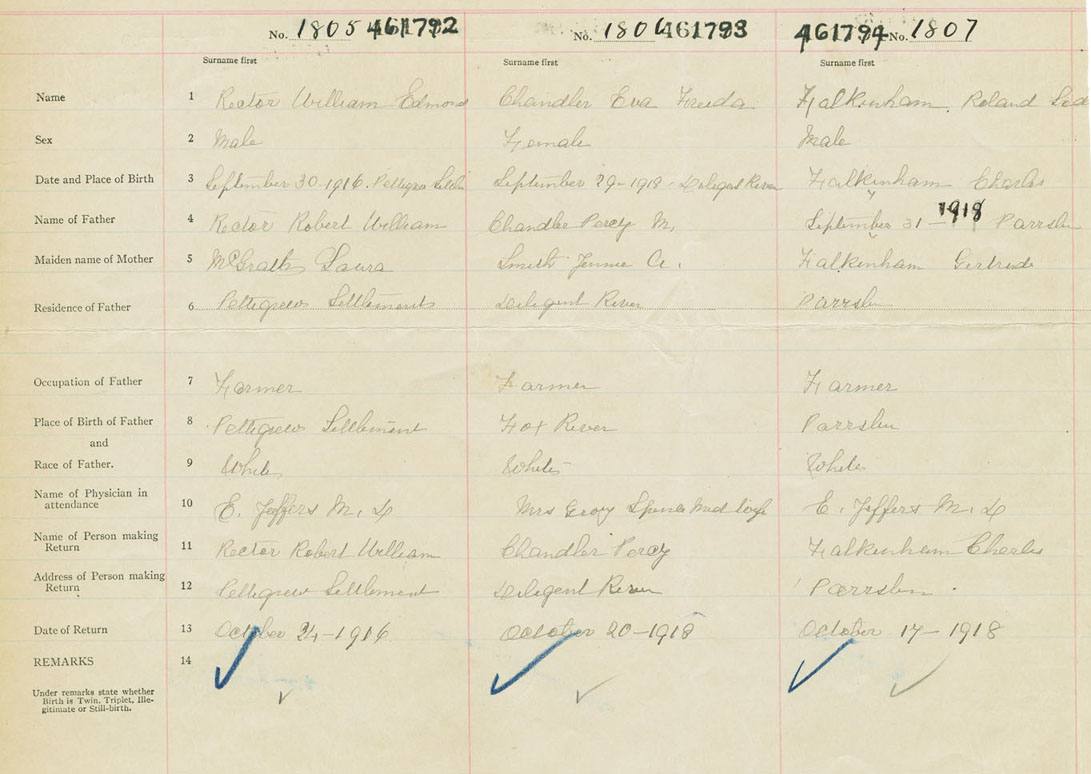 No. 1805 461792 No. 1806 461793 461794 No. 1807
Surname first Surname first Surname first
Name 1 Rector William Edmond Chandler Eva Freeda Falkinham Roland
Sex 2 Male Female Male
Date and Place of Birth 3 September 30-1916. Pettigrew September 29-1918 - Deligent River Falkinham Charles
Name of Father 4 Rector Robert William Chandler Percy M. September 31-1918 Parrsbro
Maiden name of Mother 5 McGrath Laura Smith Jennie A. Falkinham Gertrude
Residence of Father 6 Pettigrew Settlement Deligent River Parrsbro
Occupation of Father 7 Farmer Farmer Farmer
Place of Birth of Father 8 Pettigrew Settlement Fox River Parrsbro
and
Race of Father. 9 White White White
Name of Physician in
attendance 10 E. Jeffers M. D Mrs Spence E. Jeffers M. D
Name of Person making
Return 11 Rector Robert William Chandler Percy Falkinham Charles
Address of Person making
Return 12 Pettigrew Settlement Deligent River Parrsbro
Date of Return 13 October 24-1916 October 20-1918 October 17-1918
REMARKS 14
Under remarks state whether
Birth is Twin, Triplet, Ille-
gitimate or Still-birth.